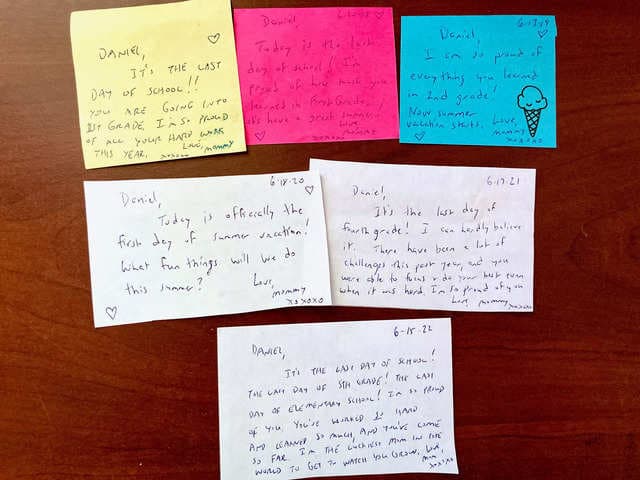 DANIEL,
IT'S THE LAST
DAY OF SCHOOL!!
YOU ARE GOING INTO
1ST GRADE. I'M SO PROUD
OF ALL YOUR HARD WORK
THIS YEAR. LOVE, MOMMY
xoxoxo
Daniel,
Today is the last
day of school! I'm
proud of how much you
learned in first grade.
Let's have a great summer.
Love,
mommy
xoxoxo
6-13-19
Daniel,
I am so proud of
everything you learned
in 2nd grade!
Now summer
vacation starts. Love,
mommy
xoxoxo
6-18-20
Daniel,
Today is officially the
first day of summer vacation!
What fun things will we do
this summer?
Love,
mommy
xoxoxo
6-17-21
Daniel,
It's the last day of
fourth grade! I can hardly believe
it. There have been a lot of
challenges this past year, and you
were able to focus & do your best even
when it was hard. I'm so proud of you
Love, mommy
xoxoxo
DANIEL,
IT'S THE LAST DAY OF SCHOOL!
THE LAST DAY OF 5TH GRADE! THE LAST
DAY OF ELEMENTARY SCHOOL! I'M SO PROUD
OF YOU. YOU'VE WORKED SO HARD
AND LEARNED SO MUCH, AND YOU'VE COME
SO FAR. I'M THE LUCKIEST MOM IN THE
WORLD TO GET TO WATCH YOU GROW. LOVE,
MOM
xoxoxo